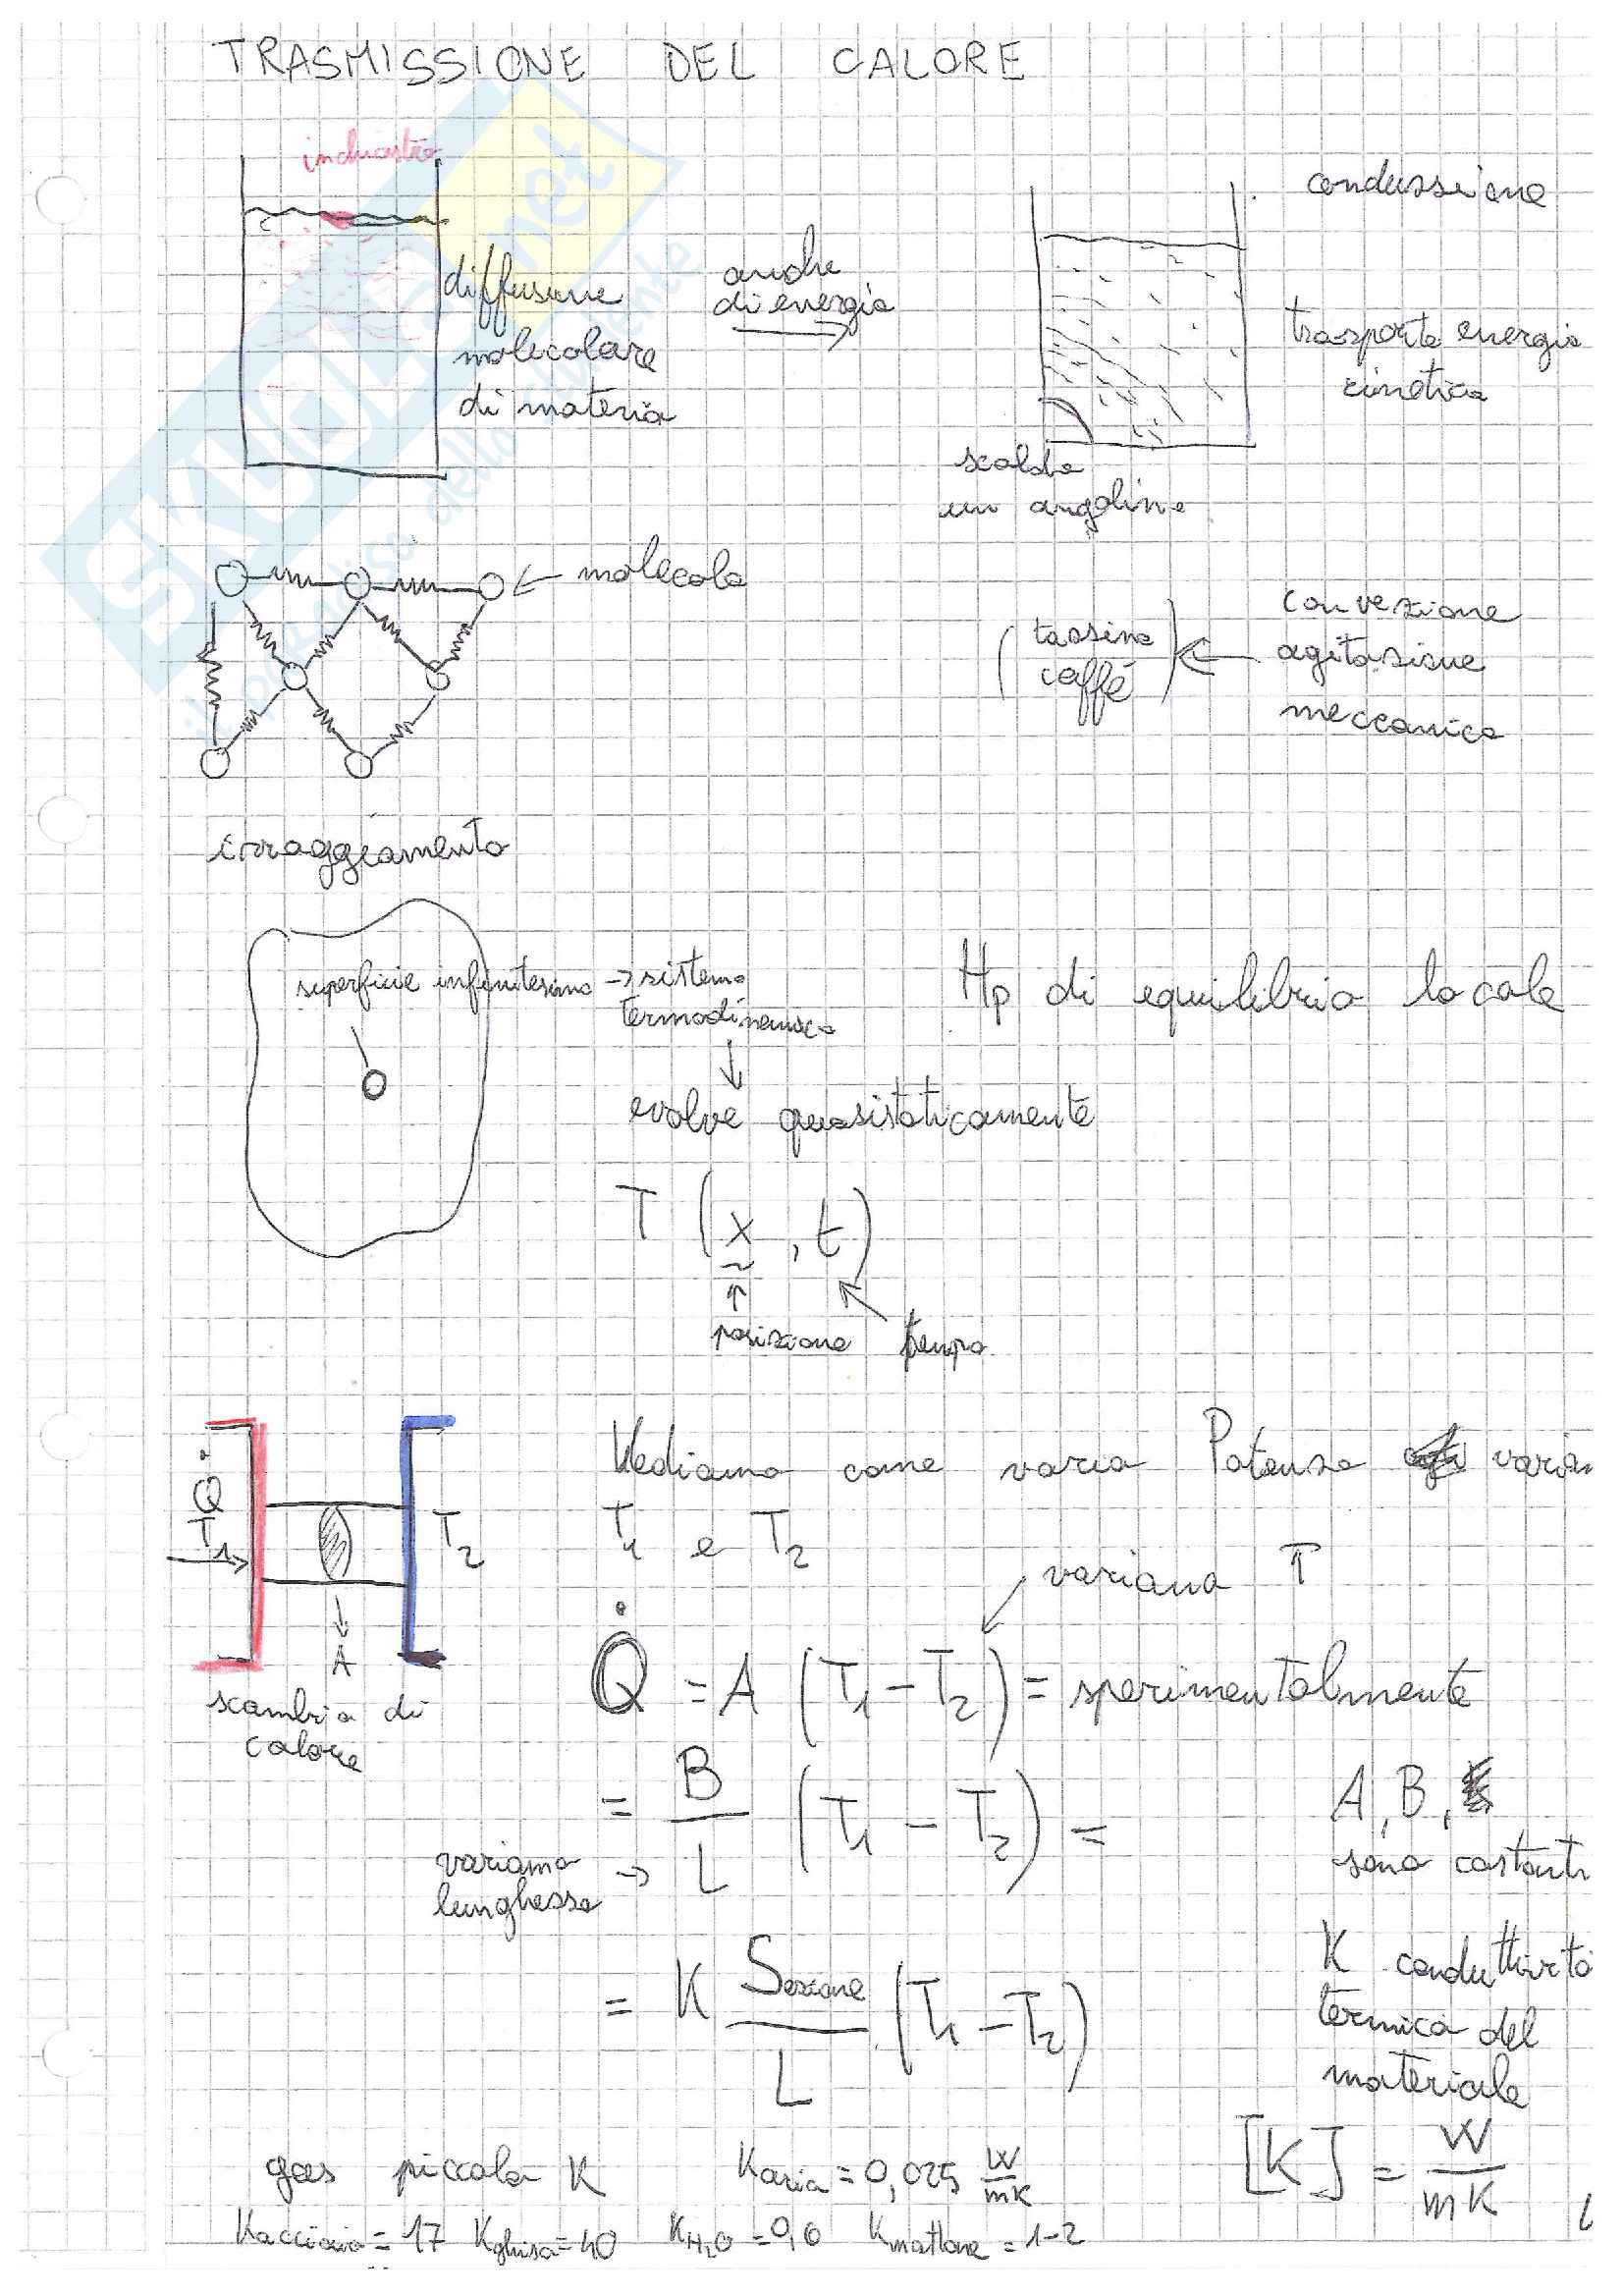 TRASMISSIONE DEL CALORE
inchiostro
diffusione
molecolare
di materia
anche
di energia
conduzione
trasporto energia
cinetica
scaldo
un angolino
molecola
(tazzina
caffè)
convezione
agitazione
meccanica
irraggiamento
superficie infinitesima → sistema
termodinamico
Hp di equilibrio locale
evolve quasistaticamente
T (x, t)
posizione tempo
Q̇
T1
T2
A
scambio di
calore
Vediamo come varia Potenza varian
T1 e T2
variano T
Q̇ = A (T1 - T2) = sperimentalmente
= B/L (T1 - T2) =
variamo
lunghezza →
A, B,
sono costanti
= K Sezione/L (T1 - T2)
K conduttività
termica del
materiale
[K] = W/mK
gas piccola K Karia = 0,025 W/mK
Kacciaio = 17 Kghisa = 40 KH2O = 0,6 Kmattone = 1-2
SKUOLA.net